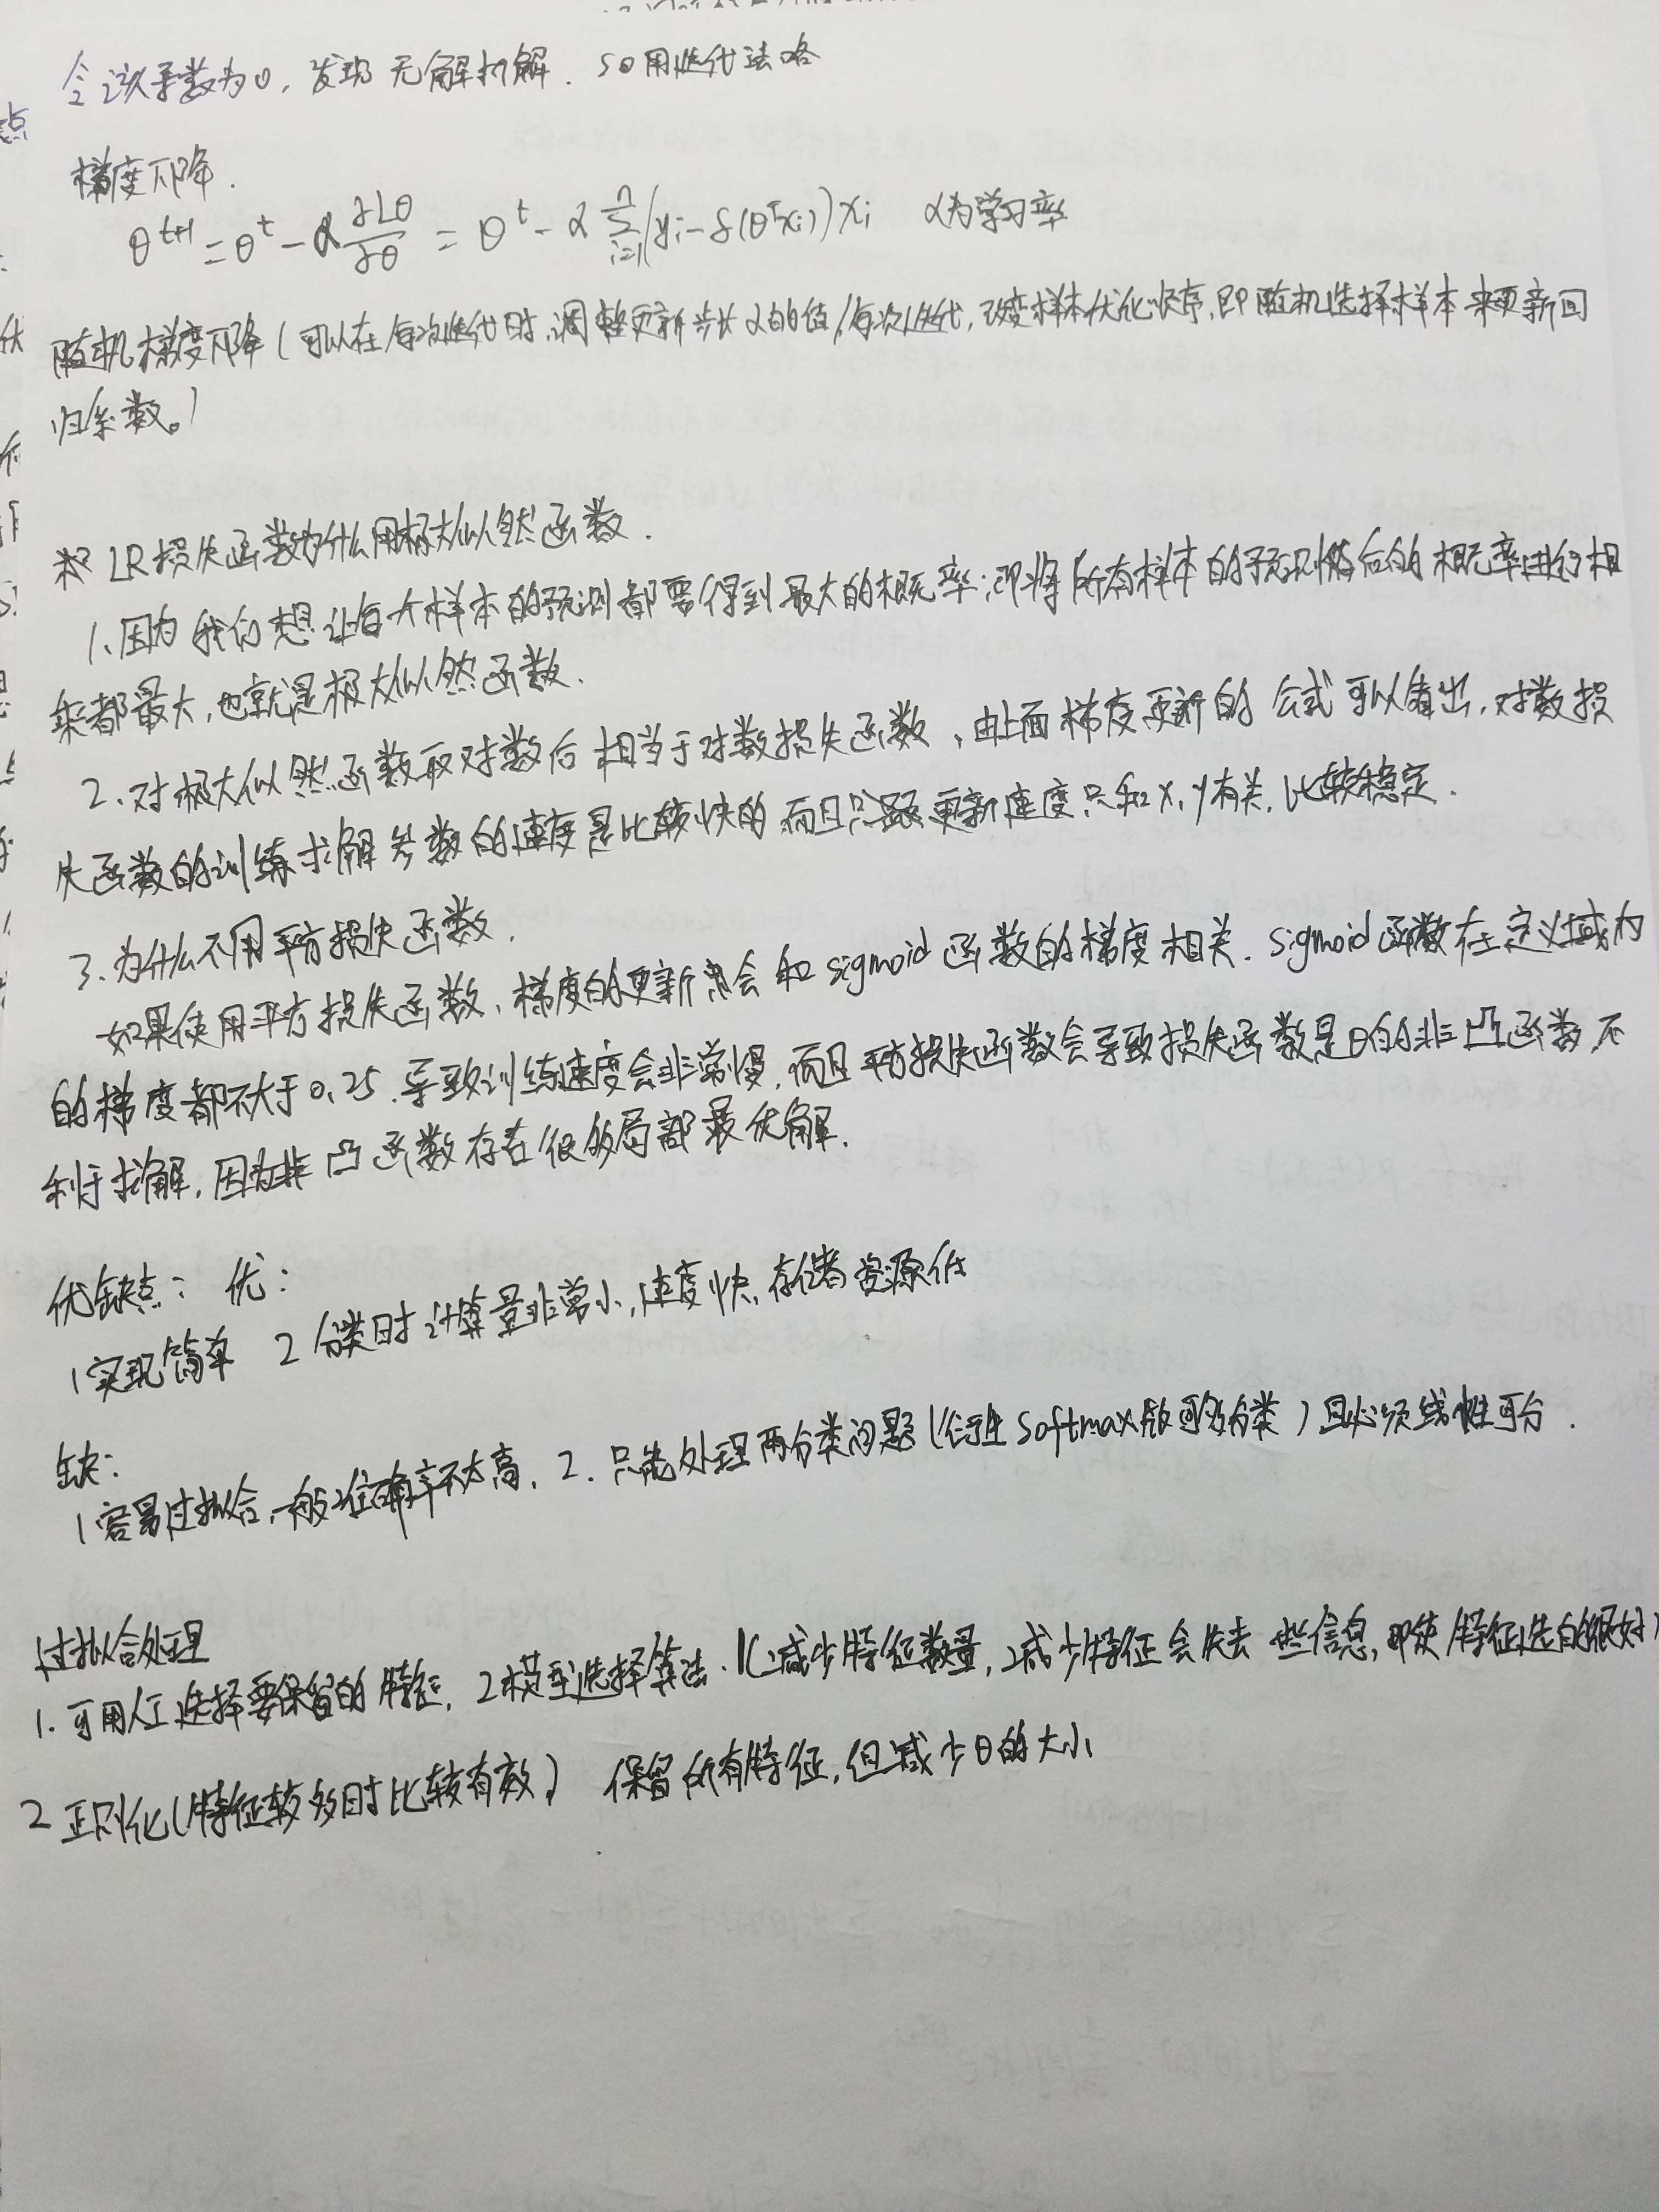 令该导数为0，发现无解析解．so用迭代法咯
梯度下降．
θ^{t+1} = θ^t - α ∂Lθ/∂θ = θ^t - α Σ_{i=1}^{n} (y_i - g(θ^T x_i)) x_i  α为学习率
随机梯度下降（可以在每次迭代时，调整更新步长α的值/每次迭代，改变样本优化顺序，即随机选择样本来更新回
归系数。）
LR损失函数为什么用极大似然函数．
1、因为我们想让每个样本的预测都要得到最大的概率；即将所有样本的预测后的概率进行相
乘都最大，也就是极大似然函数．
2、对极大似然函数取对数后相当于对数损失函数，由上面梯度更新的公式可以看出，对数损
失函数的训练求解参数的速度是比较快的，而且更新速度只和x，y有关，比较稳定．
3、为什么不用平方损失函数．
如果使用平方损失函数，梯度的更新会和sigmoid函数的梯度相关．sigmoid函数在定义域内
的梯度都不大于0.25．导致训练速度会非常慢，而且平方损失函数会导致损失函数是θ的非凸函数，不
利于求解，因为非凸函数存在很多局部最优解．
优缺点：优：
1实现简单 2分类时计算量非常小，速度快，存储资源低
缺：
1容易过拟合，一般准确率不太高，2．只能处理两分类问题（衍生softmax版可多分类）且必须线性可分．
过拟合处理
1．可用人工选择要保留的特征，2模型选择算法．（减少特征数量，减少特征会失去一些信息，即使特征选的很好）
2 正则化（特征较多时比较有效） 保留所有特征，但减少θ的大小